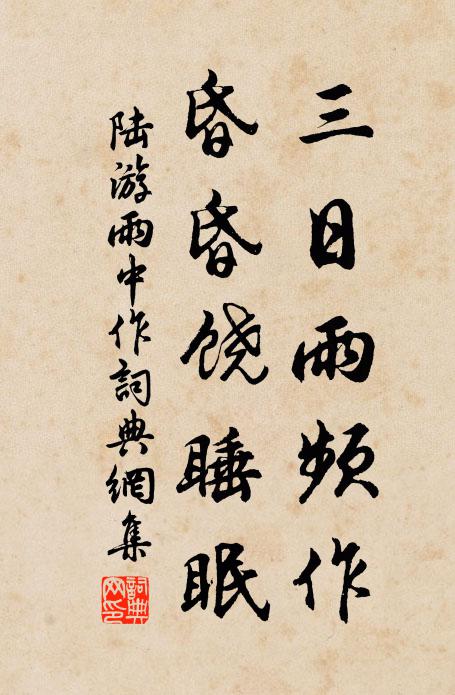 三日雨频作
昏昏饶睡眠
陆游雨中作詞典網集
詞典网印